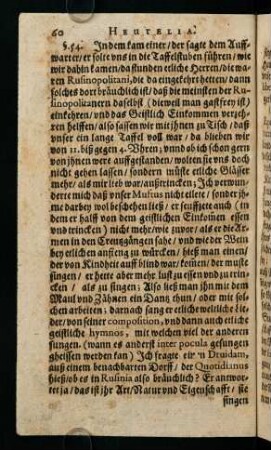 60 HEUTELIA.
§. 54. Jn dem kam einer / der sagte dem Auff-
warter / er solte vns in die Taffelstuben führen / wie
wir dahin kamen / da stunden etliche Herren / die wa-
ren Rusinopolitani, die da eingekehrt hetten / dann
solches dort bräuchlich ist / daß die meinsten der Ru-
sinopolitanern daselbst (dieweil man gastfrey ist)
einkehren / vnd das Geistlich Einkommen verzeh-
ren helffen / also sassen wir mit jhnen zu Tisch / daß
vnser ein lange Taffel voll war / da blieben wir
von 11. biß gegen 4. Vhren; vnnd ob ich schon gern
von jhnen were auffgestanden / wolten sie vns doch
nicht gehen lassen / sondern müste etliche Gläser
mehr / als mir lieb war / außtrincken; Jch verwun-
derte mich daß vnser Mutius nicht eilete / sonder jh-
me darbey wol beschehen ließ / er seuffzete auch (in
dem er halff von dem geistlichen Einkomen essen
vnd trincken) nicht mehr / wie zuvor / als er die Ar-
men in den Creutzgängen sahe / vnd wie der Wein
bey etlichen anfieng zu würcken / hieß man einen /
der von Kindheit auff blind war / komen / der muste
singen / er hette aber mehr lust zu essen vnd zu trin-
cken / als zu singen; Also ließ man jhn mit dem
Maul vnd Zähnen ein Dantz thun / oder mit sol-
chen arbeiten; darnach sang er etliche weltliche Lie-
der / von seiner composition, vnd dann auch etliche
geistliche hymnos, mit welchen viel der anderen
sungen. (wann es anderst inter pocula gesungen
gheissen werden kan) Jch fragte ein'n Druidam,
auß einem benachbarten Dorff / der Quotidianus
hieß / ob es in Rusinia also bräuchlich? Er antwor-
tet ja / das ist jhr Art / Natur vnd Eigenschafft / sie
singen